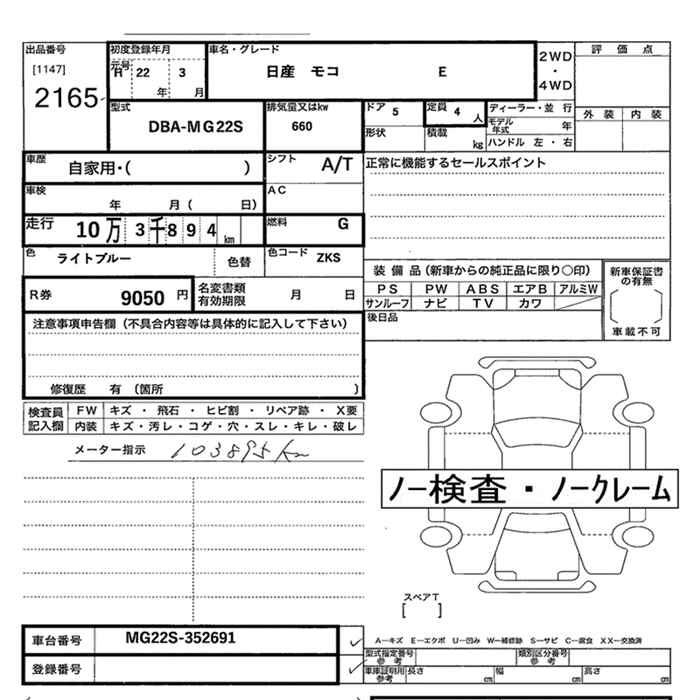 出品番号
[1147]
2165
初度登録年月
元号
H 22 3
年 月
車名・グレード
日産 モコ E
2WD
・
4WD
評価点
外装 内装
型式
DBA-MG22S
排気量又はkw
660
ドア 5
形状
定員 4 人
積載 kg
ディーラー・並行
モデル年式 年
ハンドル 左・右
車歴
自家用・( )
シフト A/T
AC
車検
年 月( 日)
走行 10万 3千894 km
燃料 G
色
ライトブルー
色替
色コード ZKS
R券 9050 円
名変書類有効期限 月 日
正常に機能するセールスポイント
装備品(新車からの純正品に限り○印)
PS PW ABS エアB アルミW
サンルーフ ナビ TV カワ
後日品
新車保証書の有無
[ ]
車載不可
注意事項申告欄(不具合内容等は具体的に記入して下さい)
修復歴 有 (箇所 )
検査員記入欄
FW キズ・飛石・ヒビ割・リペア跡・X要
内装 キズ・汚レ・コゲ・穴・スレ・キレ・破レ
メーター指示 103895km
ノー検査・ノークレーム
スペアT
[ ]
車台番号 MG22S-352691
登録番号
A―キズ E―エクボ U―凹み W―補修跡 S―サビ C―腐食 XX―交換済
型式指定番号参考
類別区分番号参考
車庫証明用参考 長さ cm 幅 cm 高さ cm